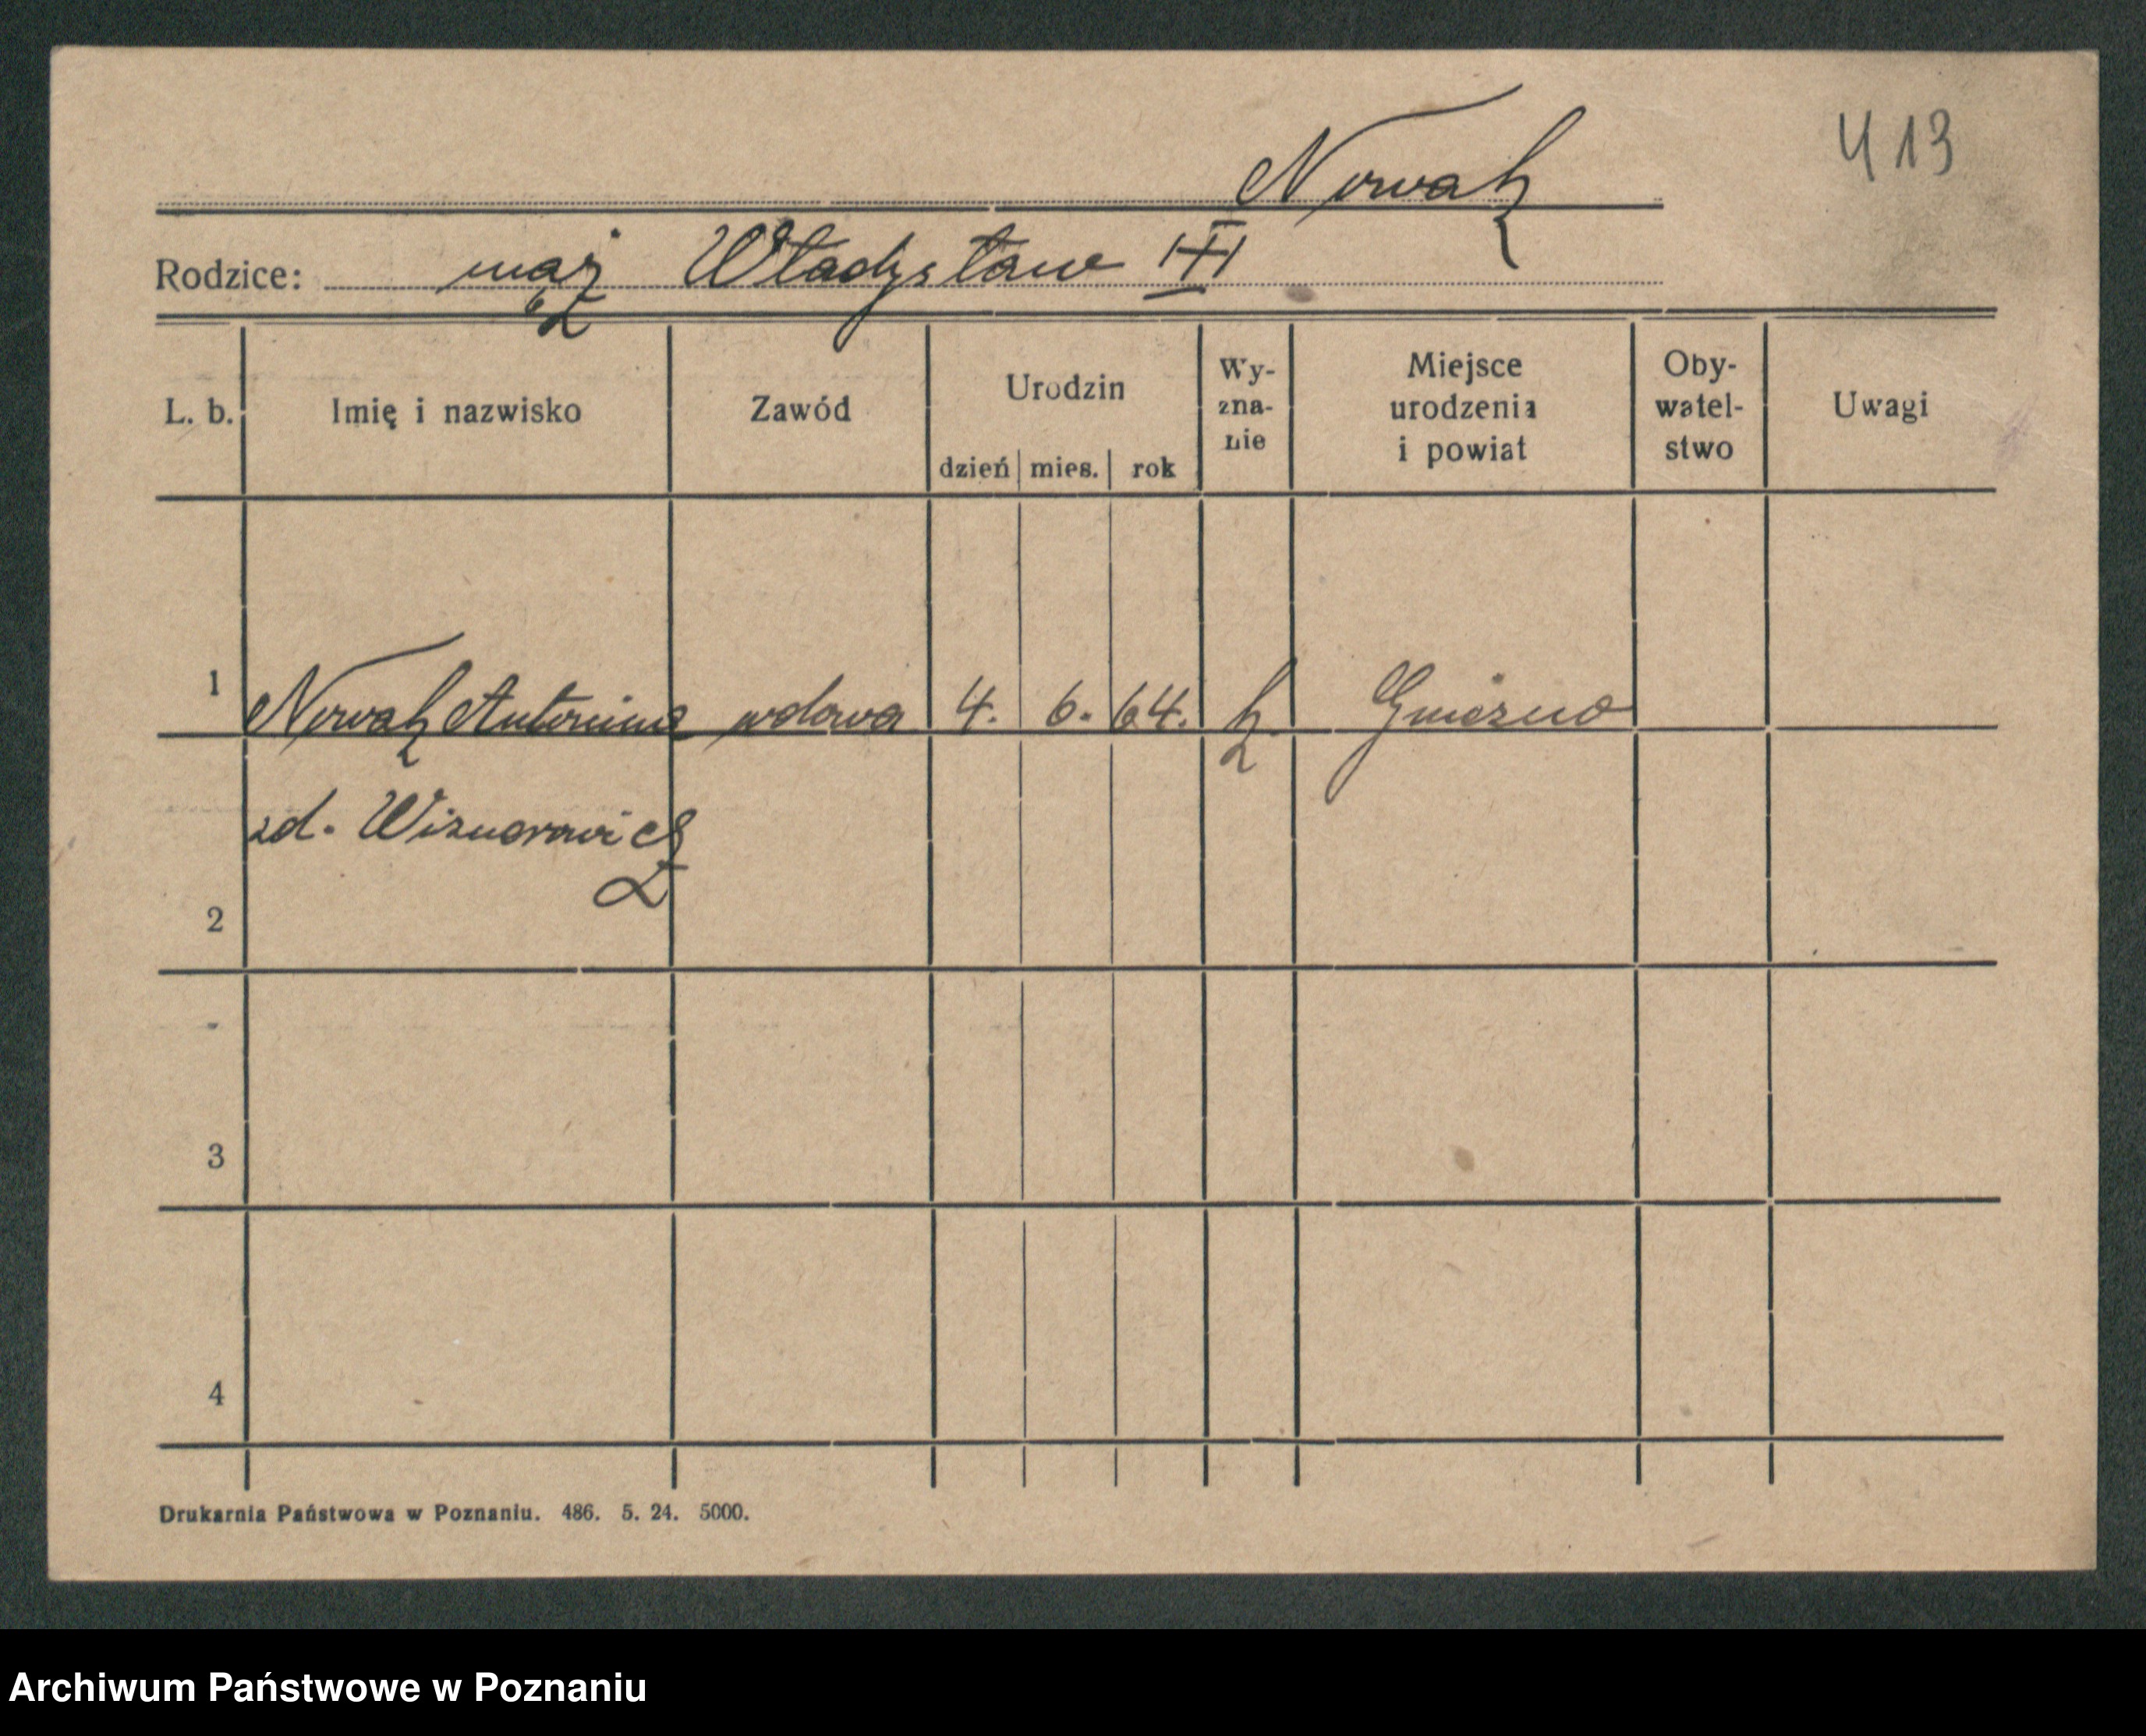 413
Nowak
Rodzice: mąż Władysław III
L. b. Imię i nazwisko Zawód Urodzin dzień mies. rok Wy-zna-nie Miejsce urodzenia i powiat Oby-watel-stwo Uwagi
1 Nowak Antonina wdowa 4. 6. 64. k Gniezno
zd.
2
3
4
Drukarnia Państwowa w Poznaniu. 486. 5. 24. 5000.
Archiwum Państwowe w Poznaniu